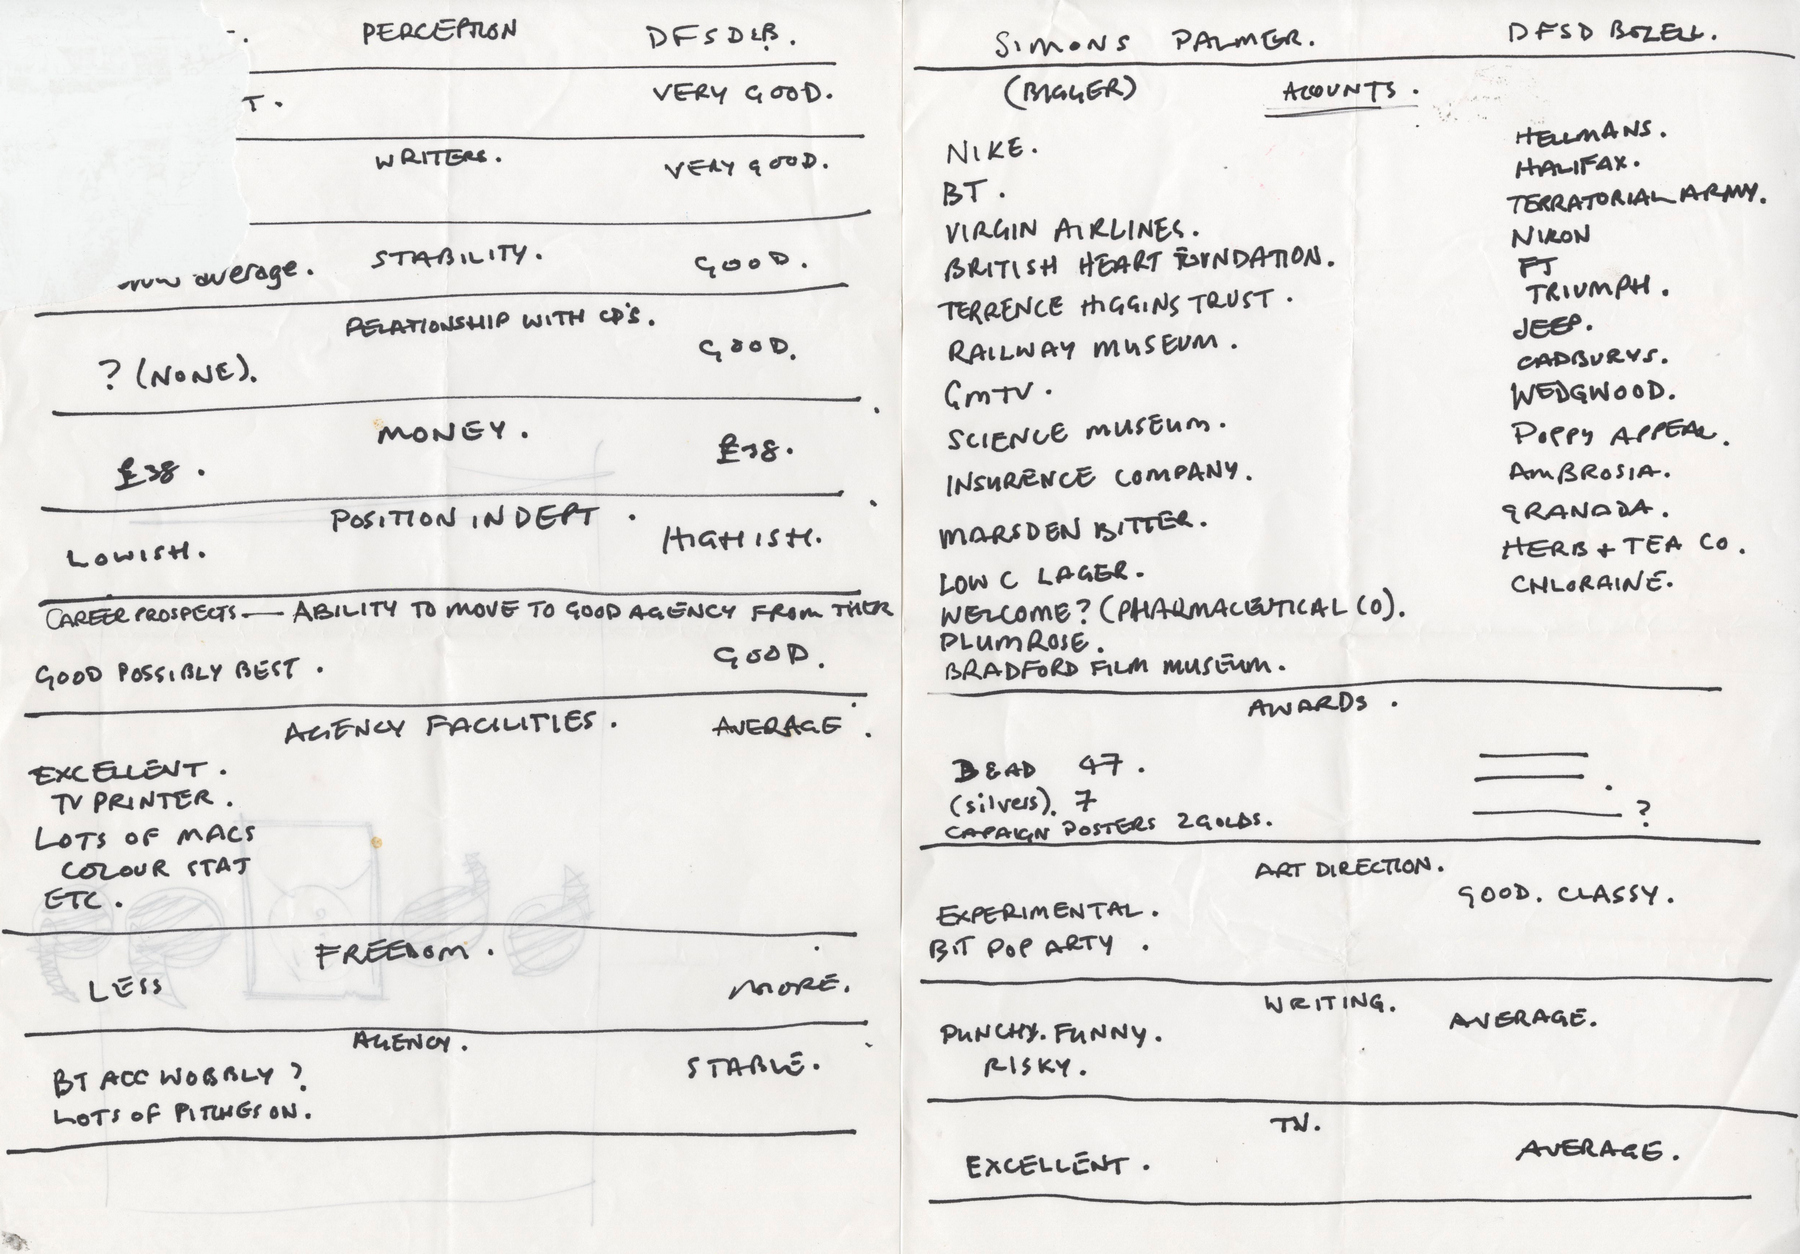 PERCEPTION DFSDLB.
T. VERY GOOD.
WRITERS. VERY GOOD.
average. STABILITY. GOOD.
RELATIONSHIP WITH CD'S.
? (NONE). GOOD.
MONEY.
£38. £38.
POSITION IN DEPT.
LOWISH. HIGHISH.
CAREER PROSPECTS — ABILITY TO MOVE TO GOOD AGENCY FROM THER
GOOD POSSIBLY BEST. GOOD.
AGENCY FACILITIES. AVERAGE.
EXCELLENT.
TV PRINTER.
LOTS OF MACS
COLOUR STAT
ETC.
FREEDOM.
LESS MORE.
AGENCY.
BT ACC WOBBLY? STABLE.
LOTS OF PITCHES ON.
SIMONS PALMER. DFSD BOZELL.
(BIGGER) ACOUNTS.
NIKE.
BT.
VIRGIN AIRLINES.
BRITISH HEART FOUNDATION.
TERRENCE HIGGINS TRUST.
RAILWAY MUSEUM.
GMTV.
SCIENCE MUSEUM.
INSURENCE COMPANY.
MARSDEN BITTER.
LOW C LAGER.
WELCOME? (PHARMACEUTICAL CO).
PLUMROSE.
BRADFORD FILM MUSEUM.
HELLMANS.
HALIFAX.
TERRATORIAL ARMY.
NIKON
FT
TRIUMPH.
JEEP.
CADBURYS.
WEDGWOOD.
POPPY APPEAL.
AMBROSIA.
GRANADA.
HERB + TEA CO.
CHLORAINE.
AWARDS.
D&AD 47.
(silvers). 7
CAPAIGN POSTERS 2 GOLDS. ?
ART DIRECTION.
EXPERIMENTAL. GOOD. CLASSY.
BIT POP ARTY.
WRITING.
PUNCHY. FUNNY. AVERAGE.
RISKY.
TV.
EXCELLENT. AVERAGE.